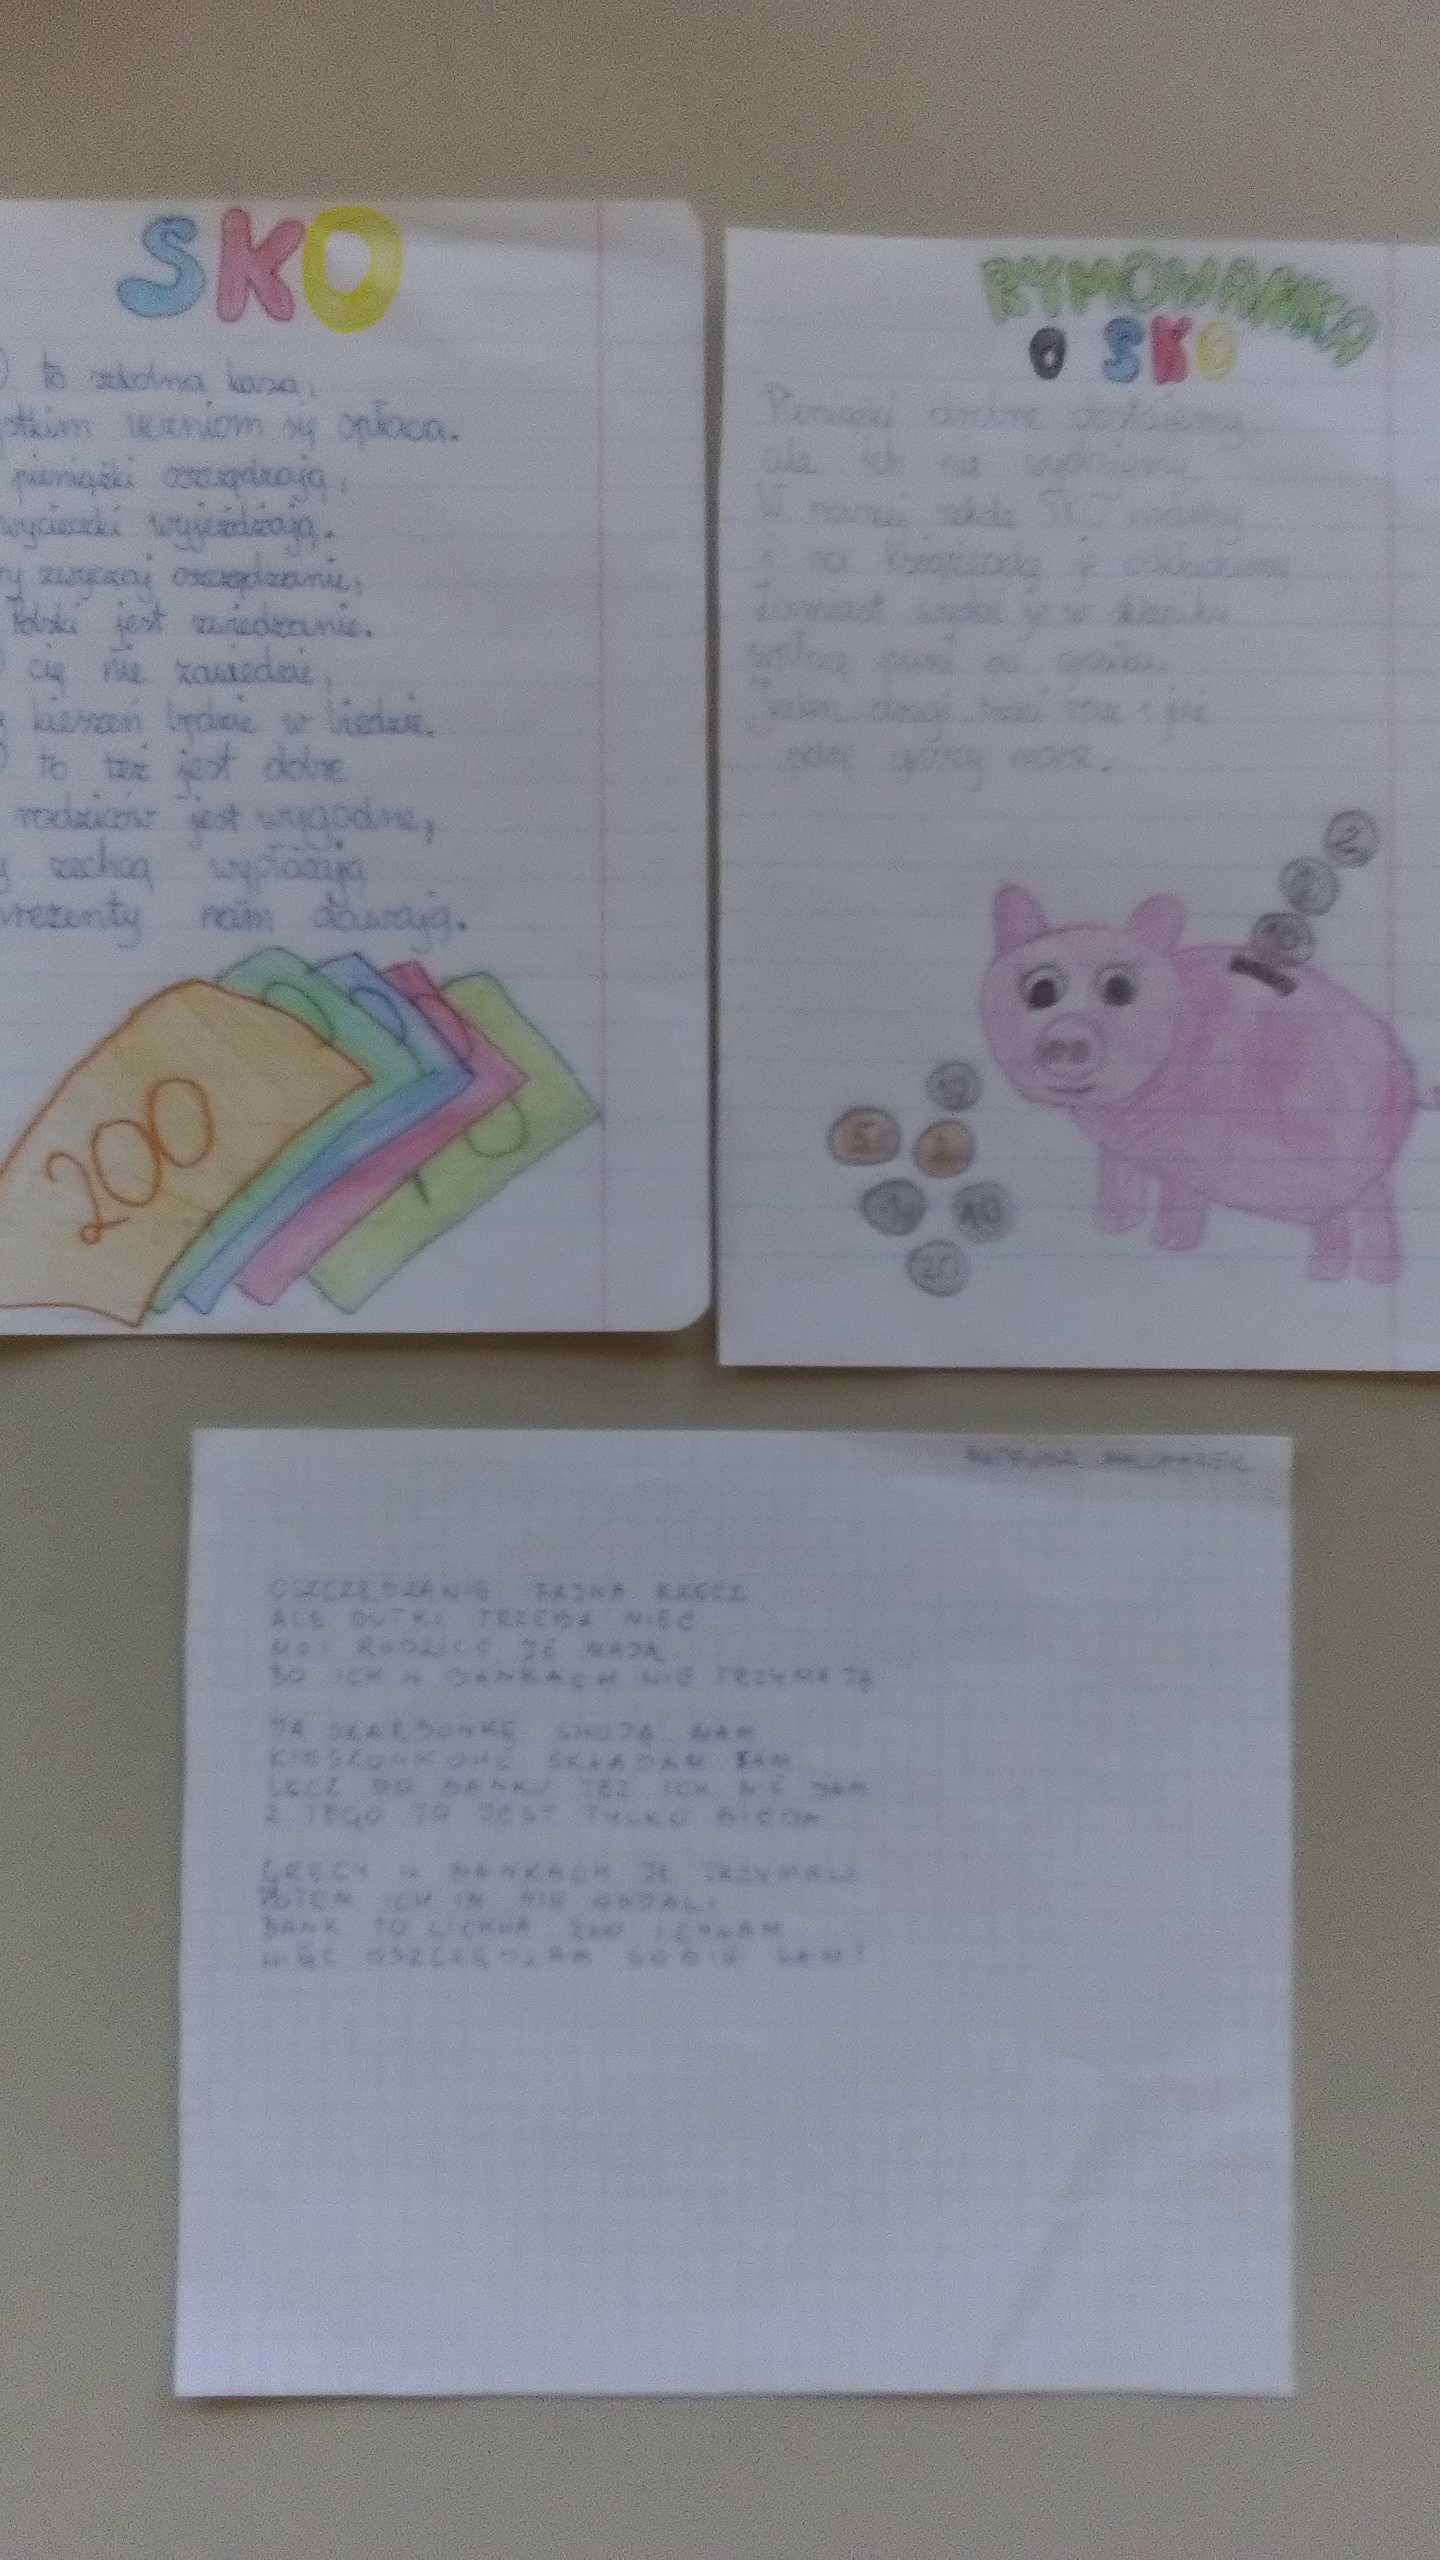 SKO
to szkolna kasa,
uczniom się opłaca.
pieniążki oszczędzają,
wycieczki wyjeżdżają.
zwyczaj oszczędzanie,
Polski jest zwiedzanie.
cię nie zawiedzie,
kieszeń będzie w biedzie.
to też jest dobre
rodziców jest wygodne,
zechcą wypłacają
prezenty nam dawają.
200
RYMOWANKA
O SKO
Pieniążki drobne dostajemy
ale ich nie wydajemy
W naszej szkole SKO mamy
i na książeczdę je odkładamy
Zamiast wydać je w sklepiku
wpłacę
Jeden drugi trzeci raz i już
parę groszy masz.
2
10
5
2
10
20
OSZCZĘDZANIE FAJNA RZECZ
ALE DUTKI TRZEBA MIEĆ
MOI RODZICE JE MAJĄ
BO ICH W BANKACH NIE TRZYMAJĄ
JA SKARBONKĘ SWOJĄ MAM
KIESZONKOWE SKŁADAM TAM
LECZ DO BANKU TEŻ ICH NIE DAM
Z TEGO TO JEST TYLKO BIEDA
GRECY W BANKACH JE TRZYMALI
POTEM ICH IM NIE ODDALI
BANK TO LICHWA
WIĘC OSZCZĘDZAM SOBIE SAM!